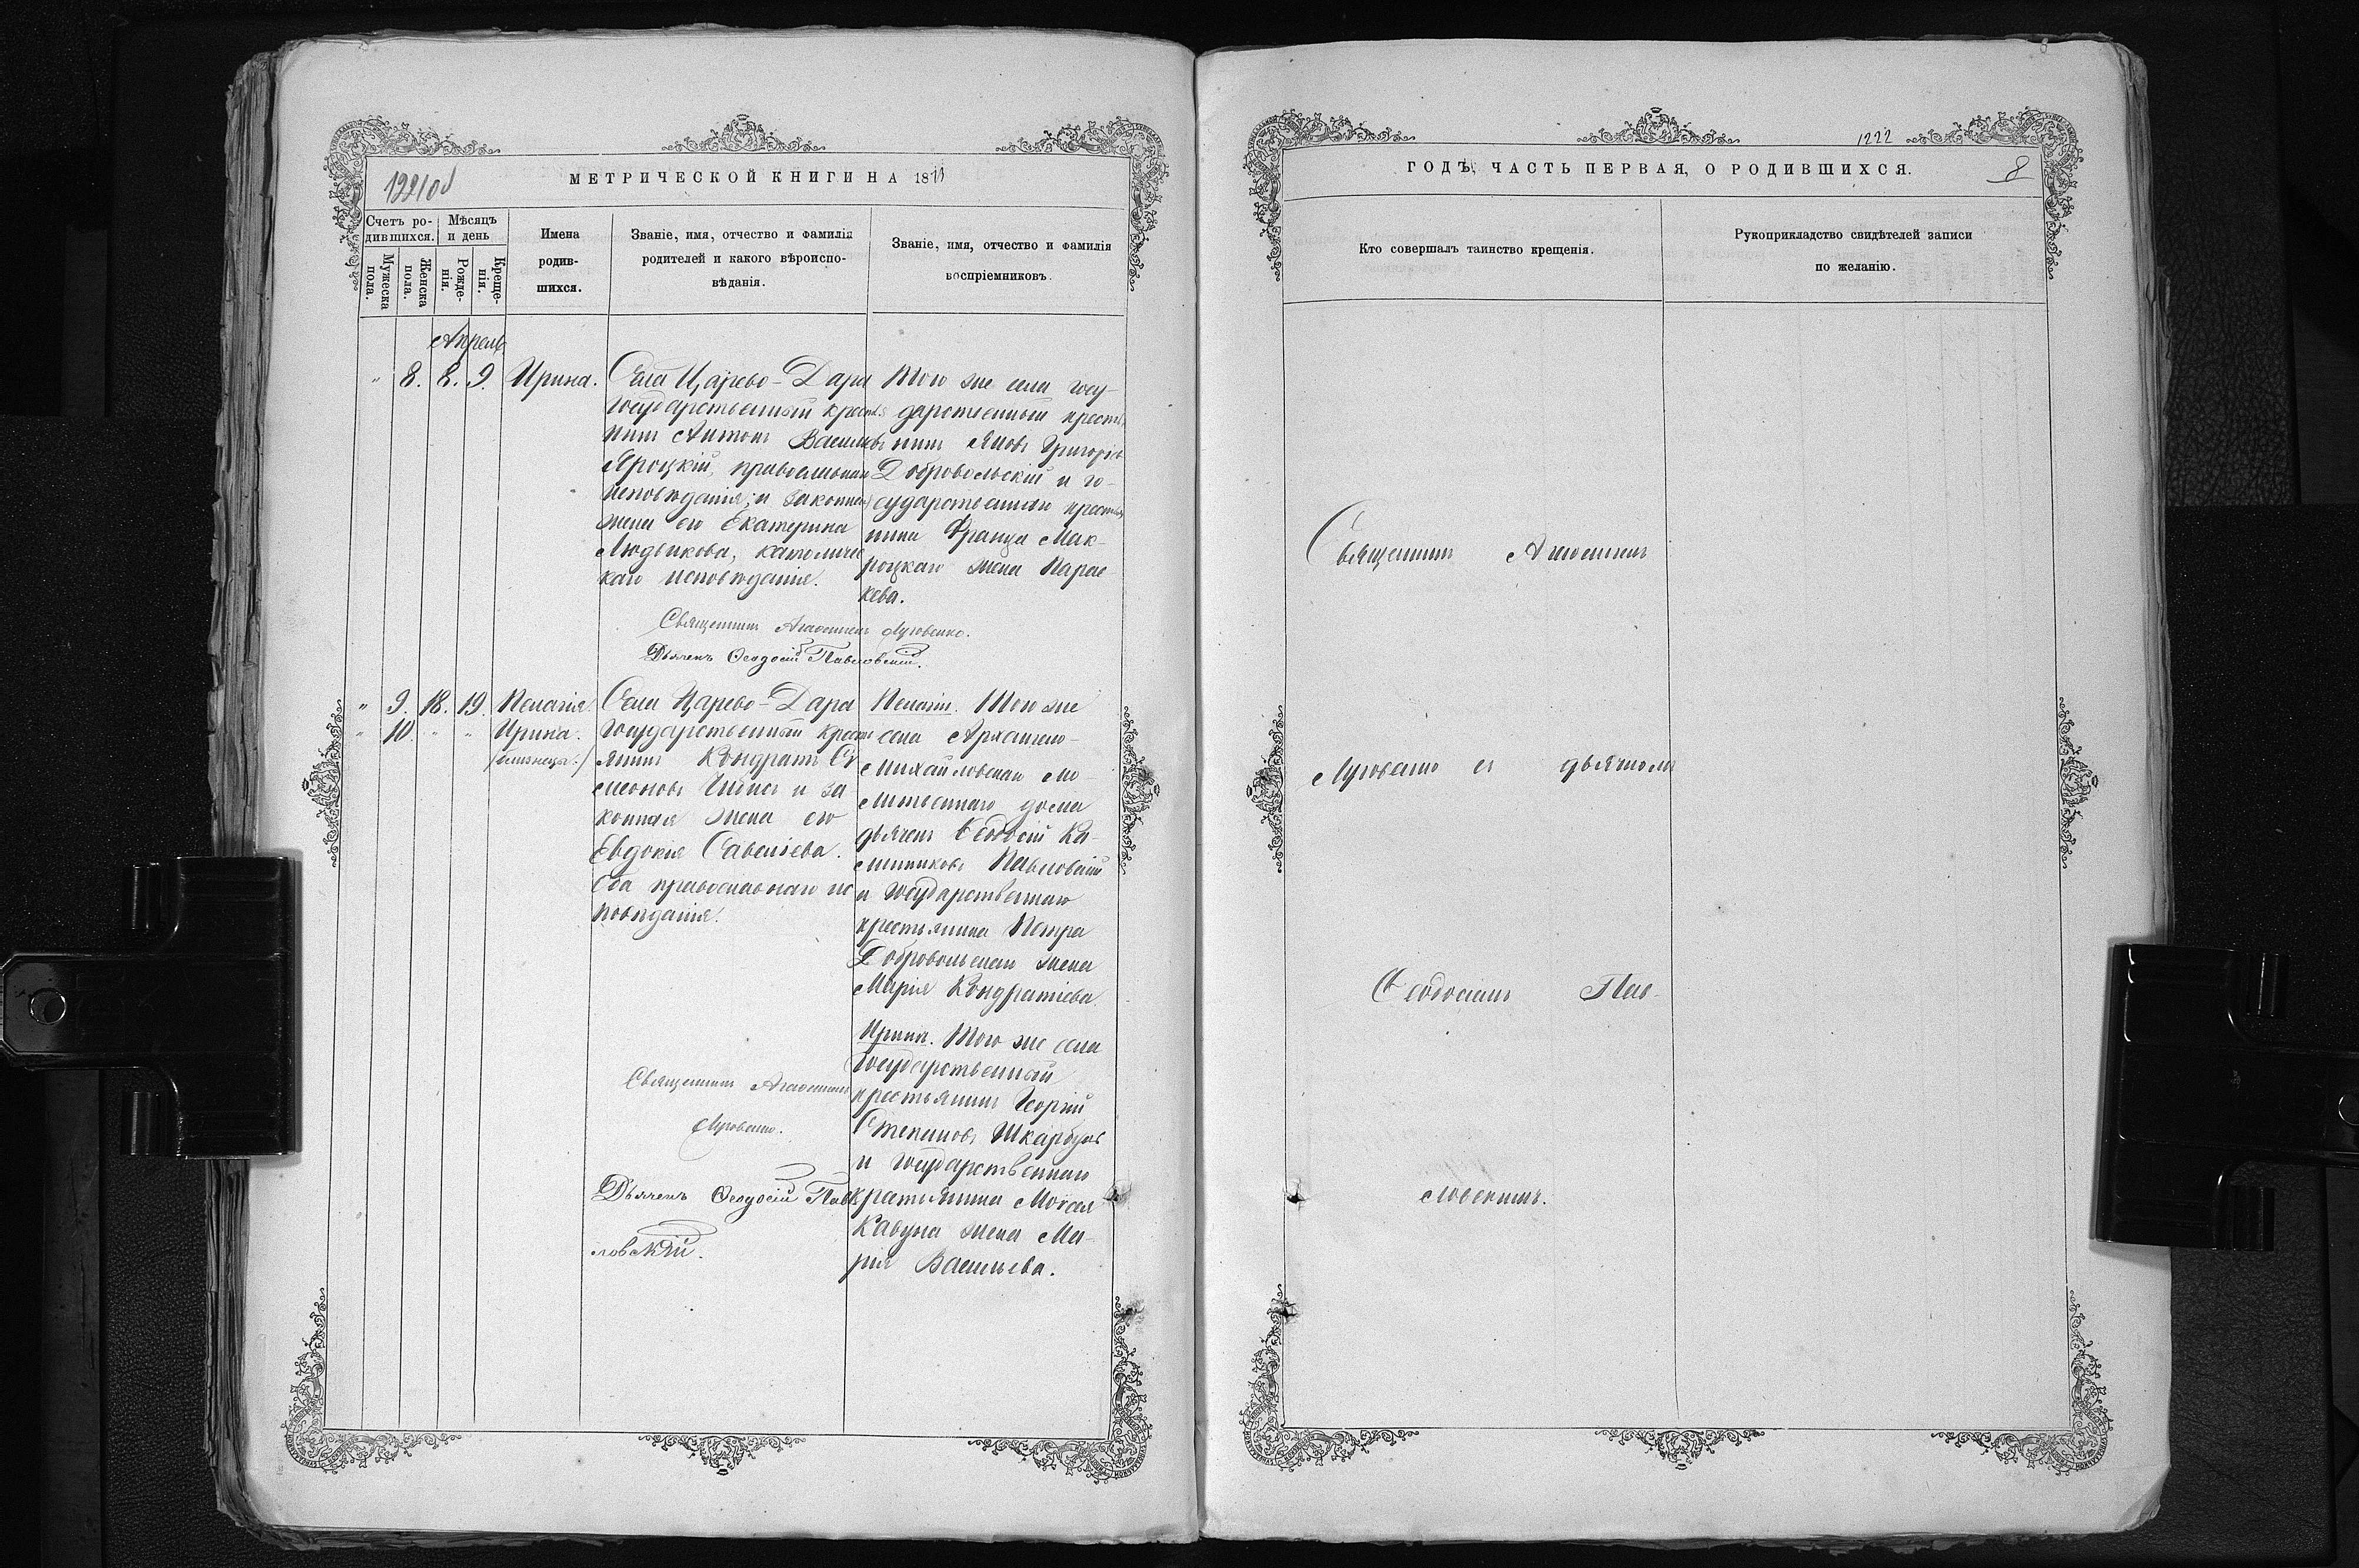 1221об
МЕТРИЧЕСКОЙ КНИГИ НА 1871
Счетъ ро-
дившихся.
Мѣсяцъ
и день
Мужеска
пола.
Женска
пола.
Рожде-
нія.
Креще-
нія.
Имена
родив-
шихся.
Званіе, имя, отчество и фамилія
родителей и какого вѣроиспо-
вѣданія.
Званіе, имя, отчество и фамилія
воспріемниковъ.
Апрель
" 8. 8. 9. Ирина.
Села Царево-Дара
государственный кресть
нинъ Антонъ Васильевъ
Яроцкій, православнаго
исповѣданія, и законная
жена его Екатерина
Людвикова, католичес
каго исповѣданія.
Того же села госу-
дарственный кресть
нинъ Яковъ Григоріевъ
Добровольскій и го-
сударственнаго кресть
нина Франца Мак-
роцкаго жена Парас-
кева.
Священникъ Агаѳангелъ Луговенко.
Дьячекъ Ѳеодосій Павловскій.
" 9. 18. 19. Пелагія
" 10. " " Ирина.
/близнецы./
Села Царево-Дара
государственный кресть
янинъ Кондратъ Си
меоновъ и за
конная жена его
Евдокія Савеліева.
Оба православнаго ис
повѣданія.
Пелагіи. Того же
села Архангело-
Михайловскаго мо-
литвеннаго дома
дьячекъ Ѳеодосій Ка-
линниковъ Павловскій
и государственнаго
крестьянина Петра
Добровольскаго жена
Марія Кондратіева.
Ирины. Того же села
государственный
крестьянинъ Георгій
Стефановъ Шкарбунъ
и государственнаго
крестьянина Мовсея
Кавуна жена Ма-
рія Васильева.
Священникъ Агаѳангелъ
Луговенко.
Дьячекъ Ѳеодосій Пав
ловскій.
1222
8
ГОДЪ, ЧАСТЬ ПЕРВАЯ, О РОДИВШИХСЯ.
Кто совершалъ таинство крещенія.
Рукоприкладство свидѣтелей записи
по желанію.
Священникъ Агаѳангелъ
Луговенко съ дьячкомъ
Ѳеодосіемъ Пав-
ловскимъ.